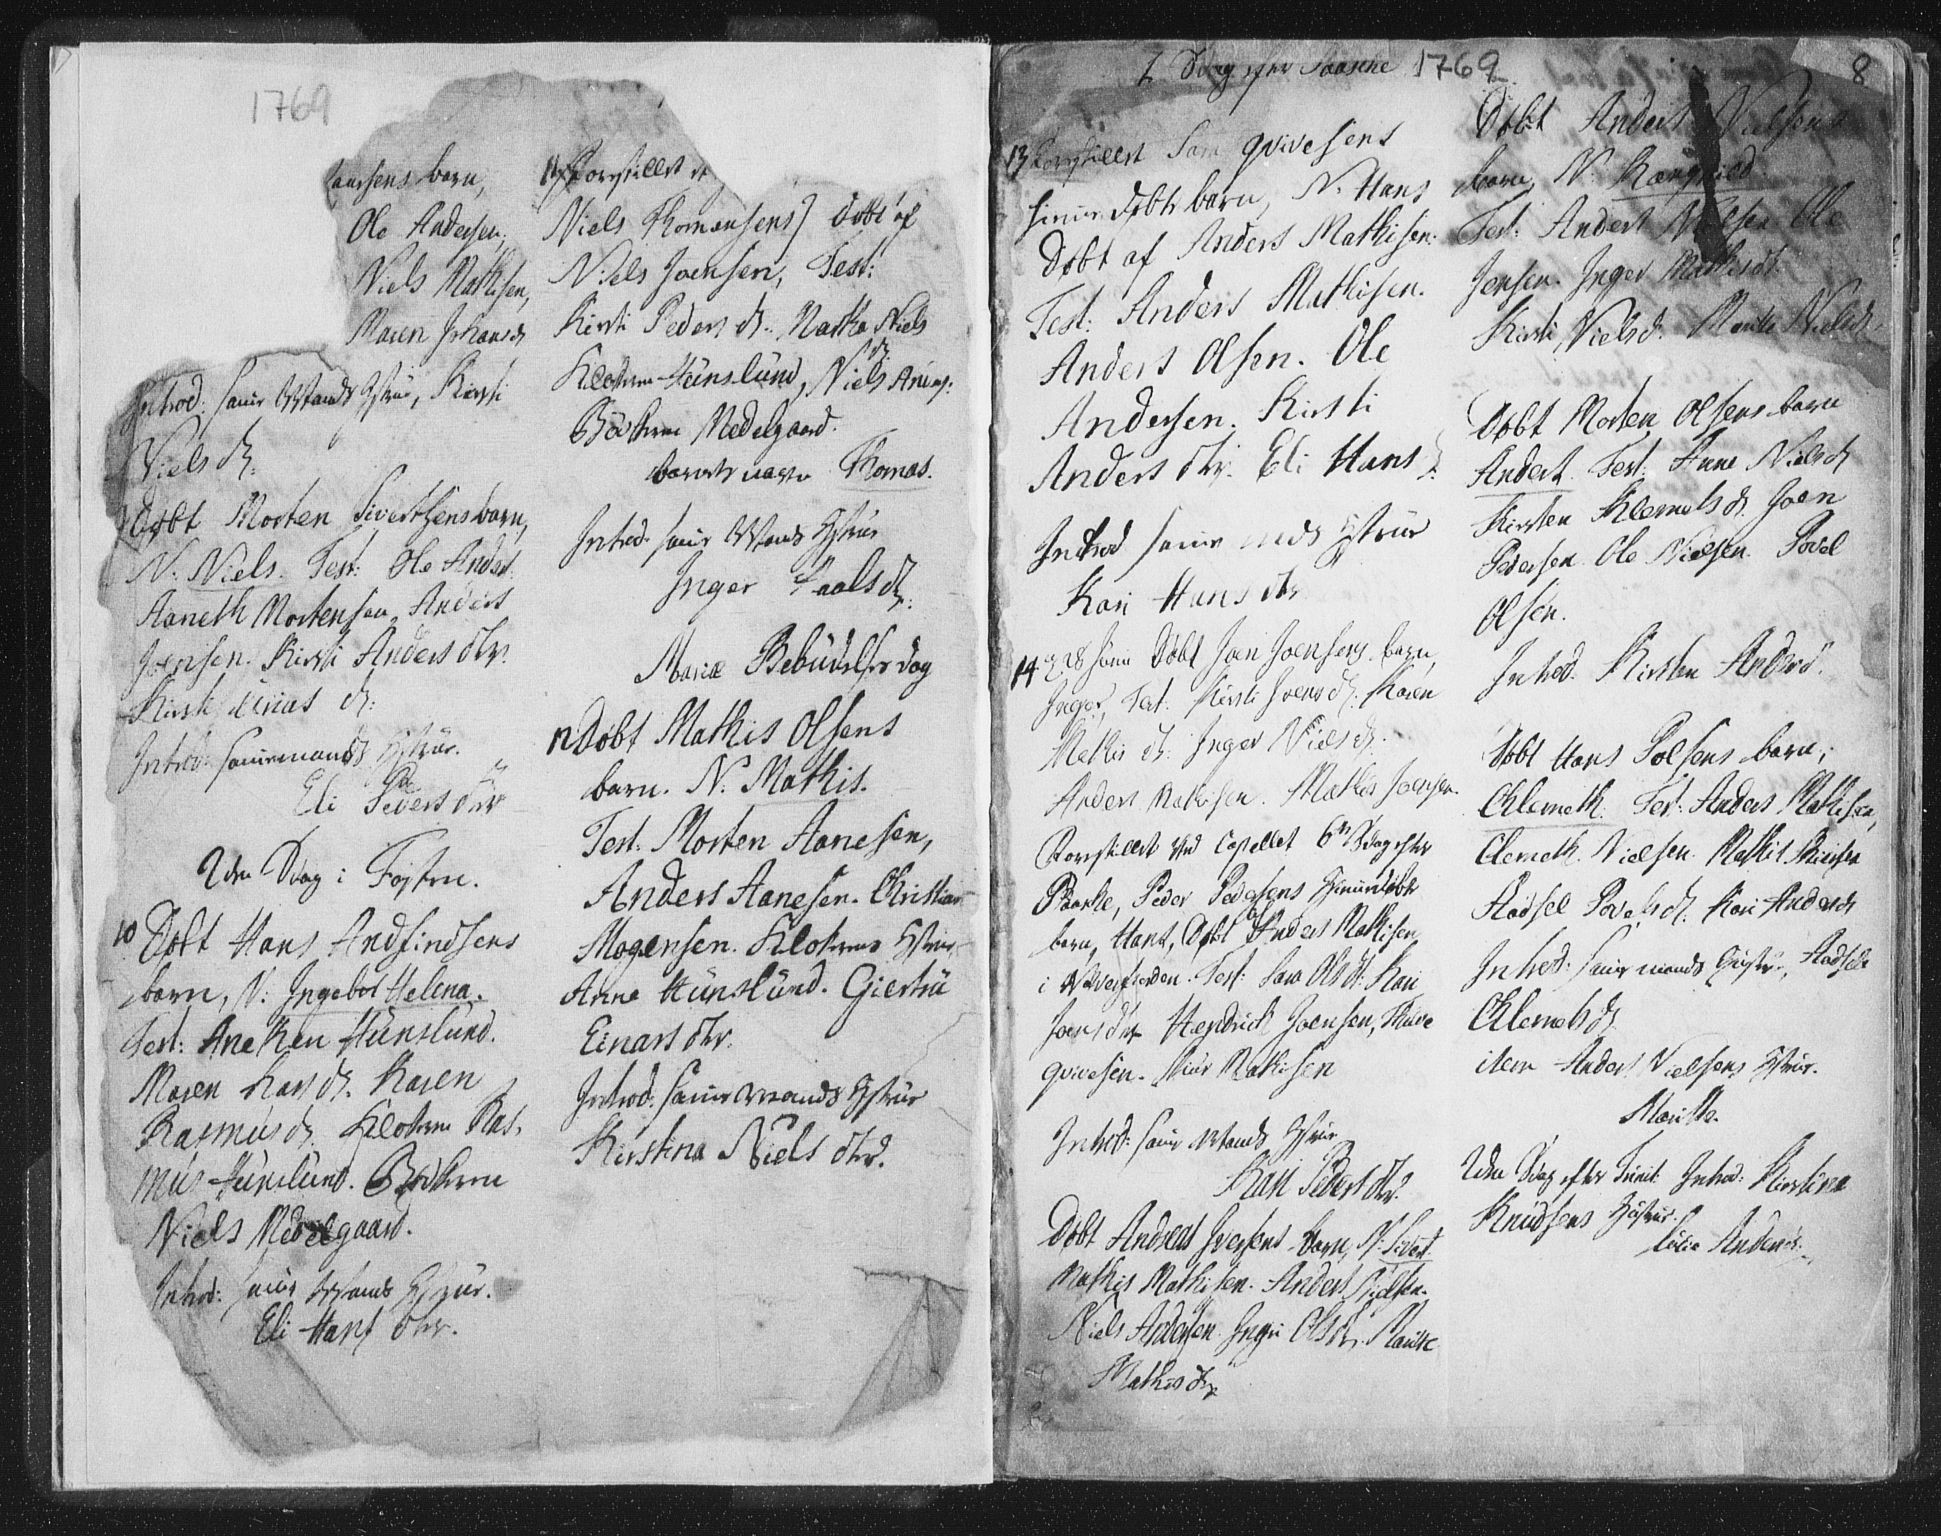 1769
barn,
Ole Andersen,
Niels Mathisen,
Maren Johans dr
Introd: samme Mands Hstrue, Kirsti
Niels dr.
Døbt Morten Sivertsens barn,
N. Niels. Test: Ole Anders.
Aaneth Mortensen, Anders
Joensen. Kirsti Anders dtr.
Kirsti dr:
Introd: samme mands Hstrue.
Eli Peders dtr
2den Sdag i Fasten.
10 Døbt Hans Andfindsens
barn, N: Ingebor Helena.
Test: Aneken Hünslund.
Maren Lars dr. Karen
Rasmus dr. Klokeren Ras-
mus Hünslund. Bødkeren
Niels Medelgaard.
Introd: samme Mands Hstrue.
Eli Hans dtr.
11 Forestillet et
Niels Thomæsens] døbt af
Niels Joensen, Test:
Kirsti Peders dr. Martha Niels dr
Klokeren Hünslund, Niels
Bødkeren Medelgaard.
barnets navn Thomas.
Introd. samme Mands Hstrue
Inger Paals dr:
Mariæ Bebudelses dag
12 Døbt Mathis Olsens
barn. N. Mathis.
Test: Morten Aanesen,
Anders Aanesen. Christian
Mogensen. Klokerens Hstrue
Anne Hünslünd. Giertru
Einars dtr.
Introd: samme mands Hstrue
Kirstina Niels dtr.
2 Sdag efter Paaske 1769
8
13 Forestillet Lars Qvivesens
hiemme døbte barn, N. Hans
Døbt af Anders Mathisen.
Test: Anders Mathisen.
Anders Olsen. Ole
Andersen. Kirsti
Anders dtr. Eli Hans dr.
Introd samme mds Hstrue
Kari Hans dtr
14 Døbt Joen Joensens barn,
Inger, Test: Kirsti Joens dr. Karen
Mathis dr. Inger Niels dr.
Anders Mathisen. Mathis Joensen.
Forestillet ved Capellet 6te Sdag efter
Paaske, Peder Pedersens hiemmedøbte
barn, Hans, Døbt af Anders Mathisen
i Test: Sara Ols dr. Kari
Joens dtr Hendrich Joensen,
Qvivesen. Mathisen
Introd: samme Mands Hstrue
Kari Peders dtr.
Døbt Andreas Iversens barn, N. Sivert.
Mathis Mathisen. Anders Nielsen.
Niels Andersen. Ingri Ols dr. Marite
Mathis dtr
Døbt Anders Nielsens
barn, N.
Test: Anders Nielsen Ole
Jensen. Inger Mathis dr.
Kirsti Niels dr. Marite Niels dr.
Døbt Morten Olsens barn
Anders. Test: Anne Niels dr
Kirsten Klemets dr. Joen
Pedersen. Ole Nielsen. Povel
Olsen.
Introd. Kirsten Anders dr.
Døbt Hans Polsens barn,
Clemeth. Test: Anders Mathisen,
Clemeth Nielsen. Mathis
Aadsel Povels dr. Kari Anders dr
Introd: samme mands Hustrue, Aadsele
Clemets dr
item Anders Nielsens Hstrue.
Marite.
2den Sdag efter Trinit. Introd: Kirstina
Knudsens Hustrue.
Anders dr.